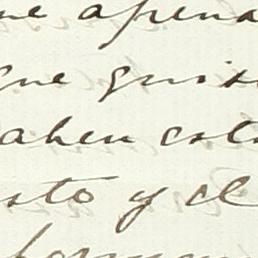 ne apena
que quis
aben est
sto y el